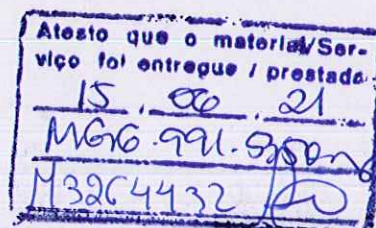 Atesto que o material/Ser-
viço foi entregue / prestado
15 . 06 . 21
M3264432